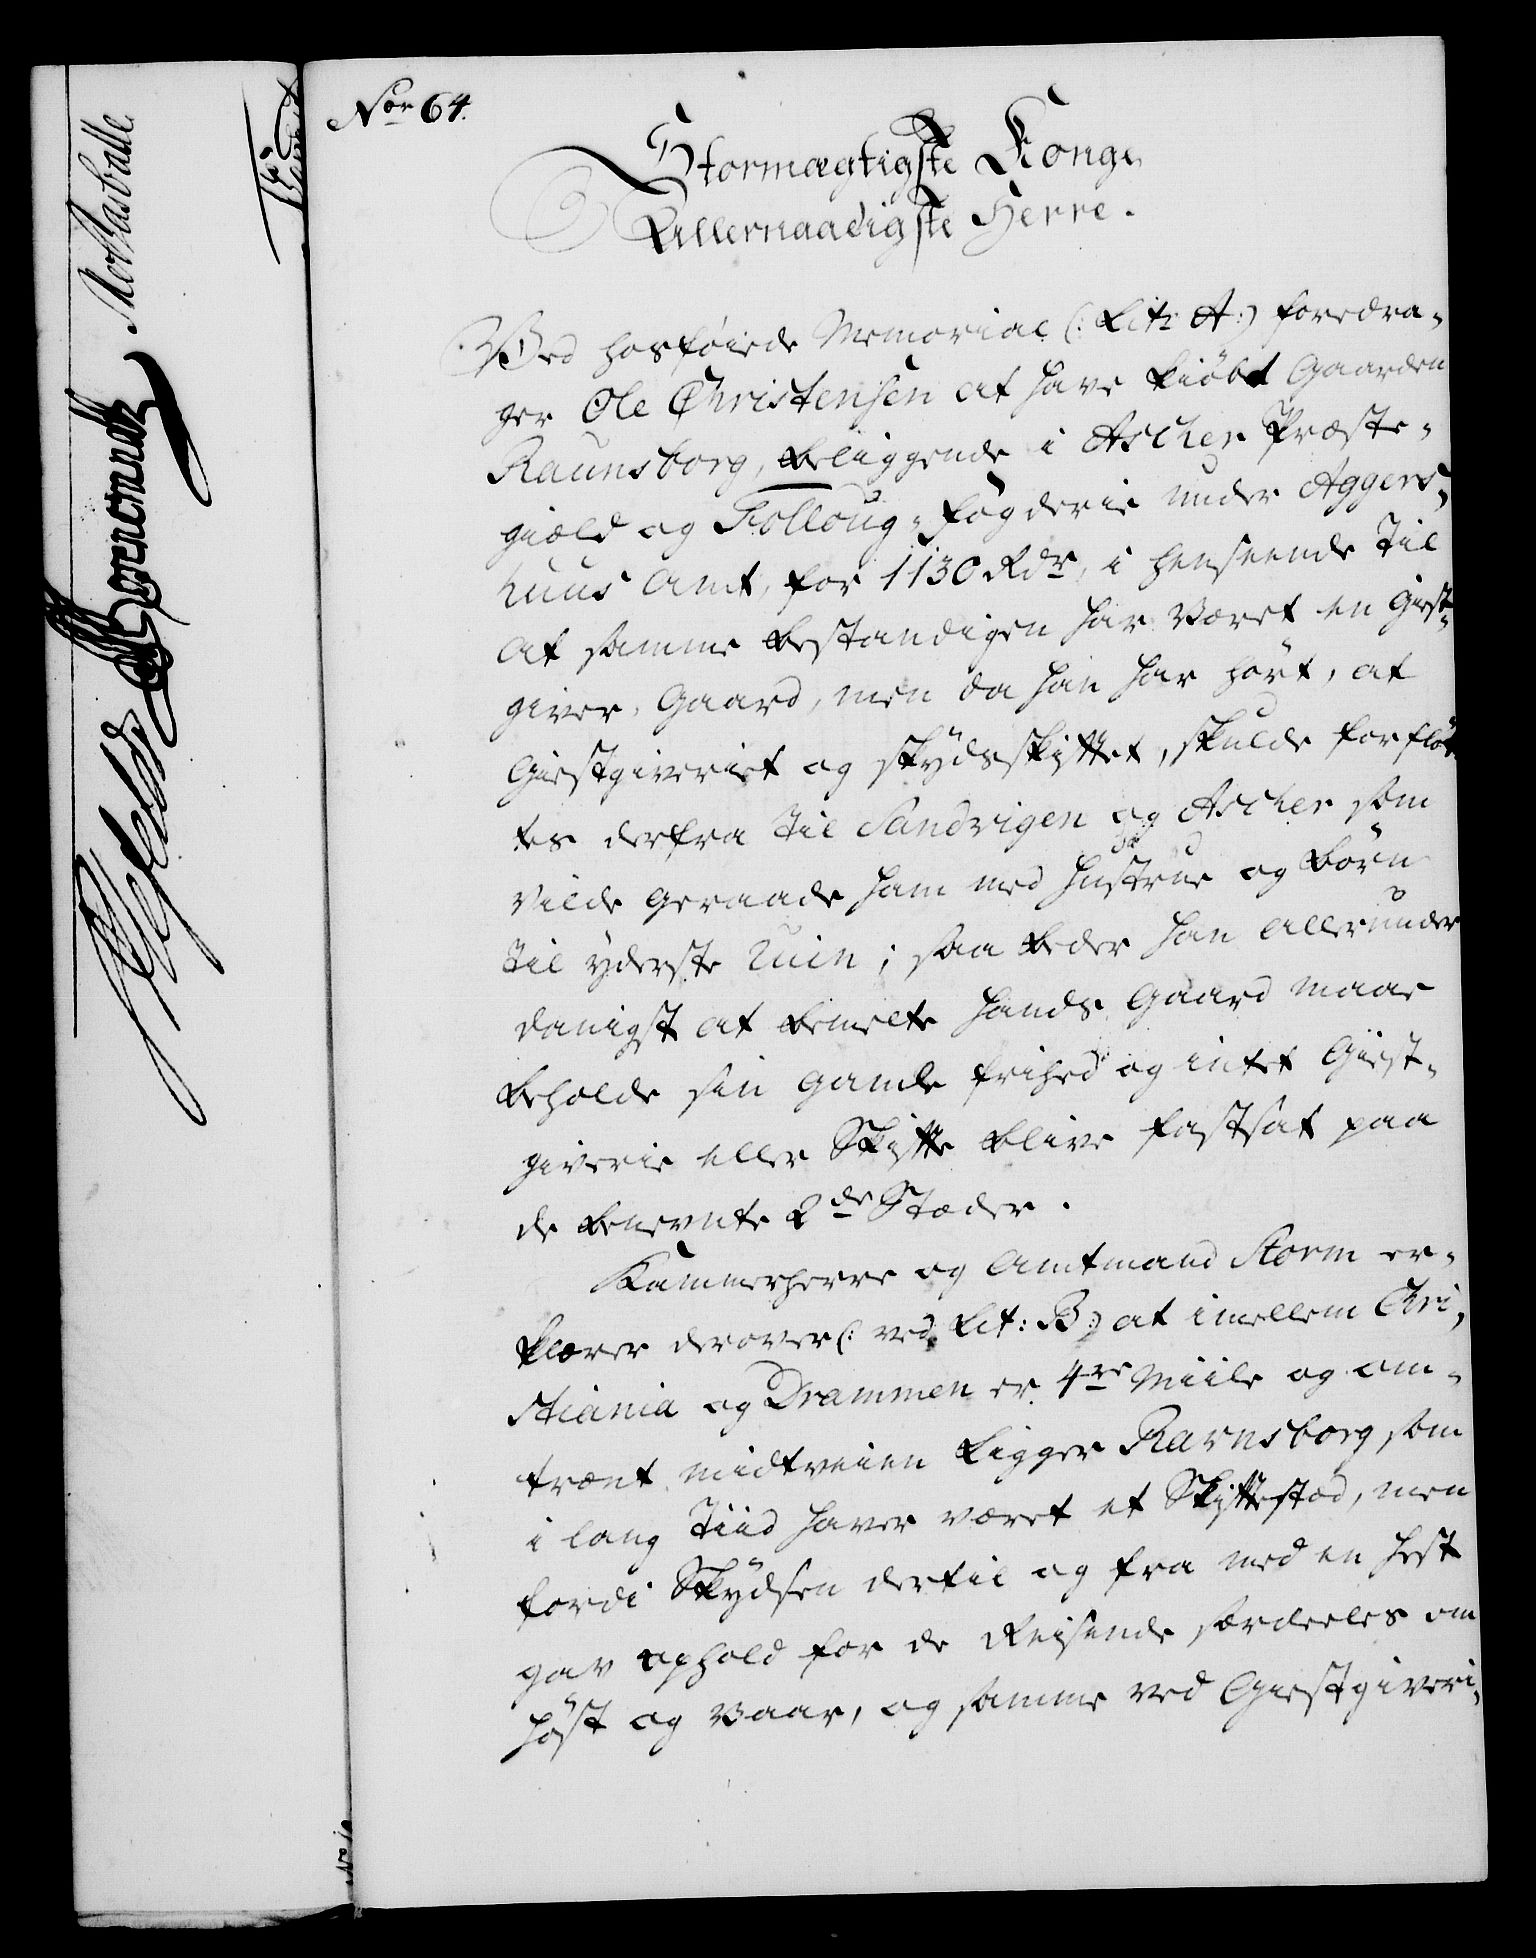 Nor 64.
Stormægtigste Konge
Allernaadigste Herre.
Ved hosføiede Memorial (: Lit: A :) foredra-
ger Ole Christensen at have kiöbt Gaarden
Raunsborg, beliggende i Ascher Præste-
giæld og Folloug-fogderie under Aggers-
huus Amt, for 1130 Rdr, i henseende til
at samme bestandigen har været en Giest-
giver-Gaard, men da han har hört, at
Giestgiveriet og skydsskiftet, skulde forflöt-
tes derfra til Sandvigen og Ascher som
vilde geraade ham med hustrue og börn
til yderste ruin; saa beder han allerunder
danigst at bemelte hands Gaard maae
beholde sin gamle frihed og intet Giest-
giverie eller Skifte blive fastsat paa
de benevnte 2de Stæder.
Kammerherre og Amtmand Storm er-
klærer derover (: ved Lit: B :) at imellem Chri-
stiania og Drammen er 4re Miile og om-
trent midtveien ligger Ravnsborg, som
i lang Tiid haver været et Skiftestæd, men
fordi Skydsen dertil og fra med en hest
gav ophold for de Reisende særdeeles om
höst og Vaar, og samme ved Giestgiveri-